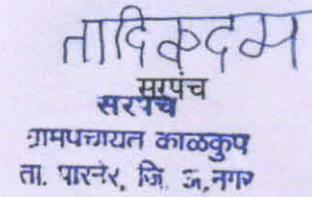 सरपंच
सरपंच
ग्रामपंचायत काळकुप
ता. पारनेर, जि. अ.नगर